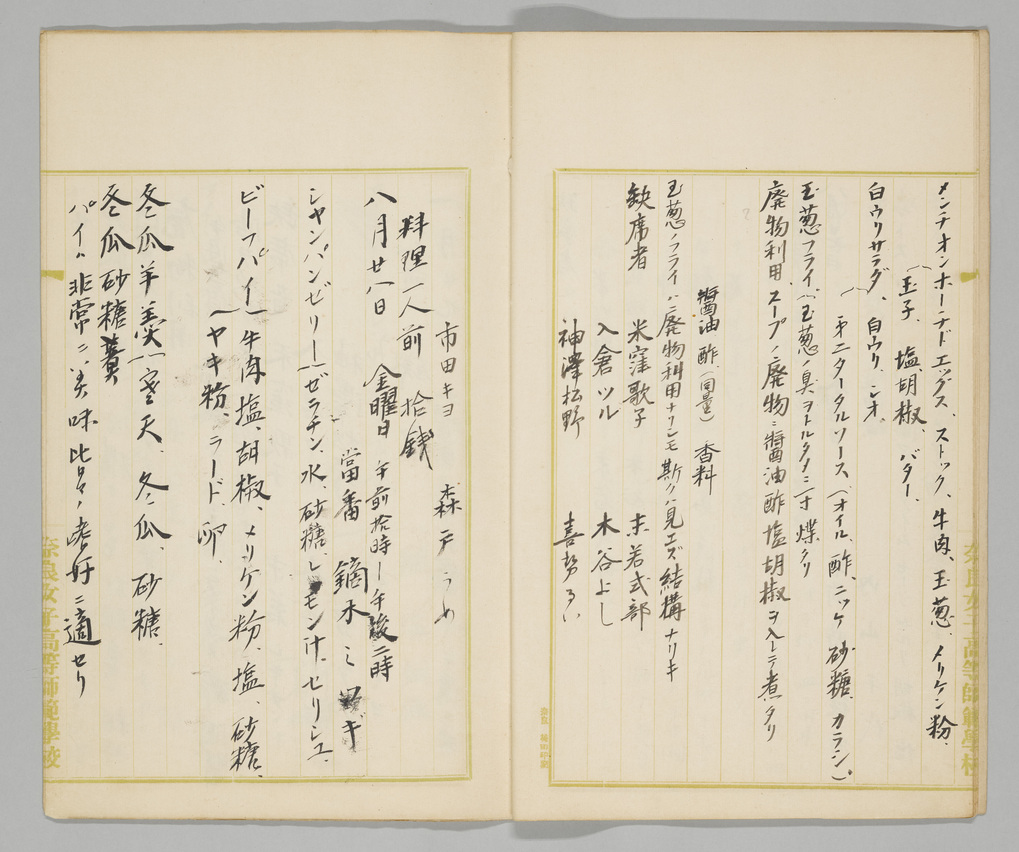 メンチオンホーチドエッグス、ストック、牛肉、玉葱、メリケン粉、
玉子、塩、胡椒、バター、
白ウリサラダ、白ウリ、シオ、
タータルソース(オイル、酢、ニッケ、砂糖、カラシ)
玉葱フライ(玉葱ノ臭ヲトルタメニ一寸煠クリ
廃物利用スープノ廃物ニ醤油酢塩胡椒ヲ入レテ煮タリ
醤油酢(同量)香料
玉葱ノフライハ廃物利用ナリシモ斯クハ見エズ結構ナリキ
缺席者 米窪歌子 末若式部
入倉ツル 木谷よし
神澤松野 喜勢るい
市田キヨ 森戸うめ
料理一人前 拾銭
八月廿八日 金曜日 午前拾時ー午後二時
當番 鏑木ミギ
シャンパンゼリー(ゼラチン、水、砂糖、レモン汁、セリシユ、
ビーフパイ(牛肉、塩、胡椒、メリケン粉、塩、砂糖、
ヤキ粉、ラード、卵、
冬瓜羊羮(寒天、冬瓜、砂糖、
冬瓜砂糖羹
パイハ非常ニ美味 嗜好ニ適セリ
奈良女子高等師範學校
奈良女子高等師範學校